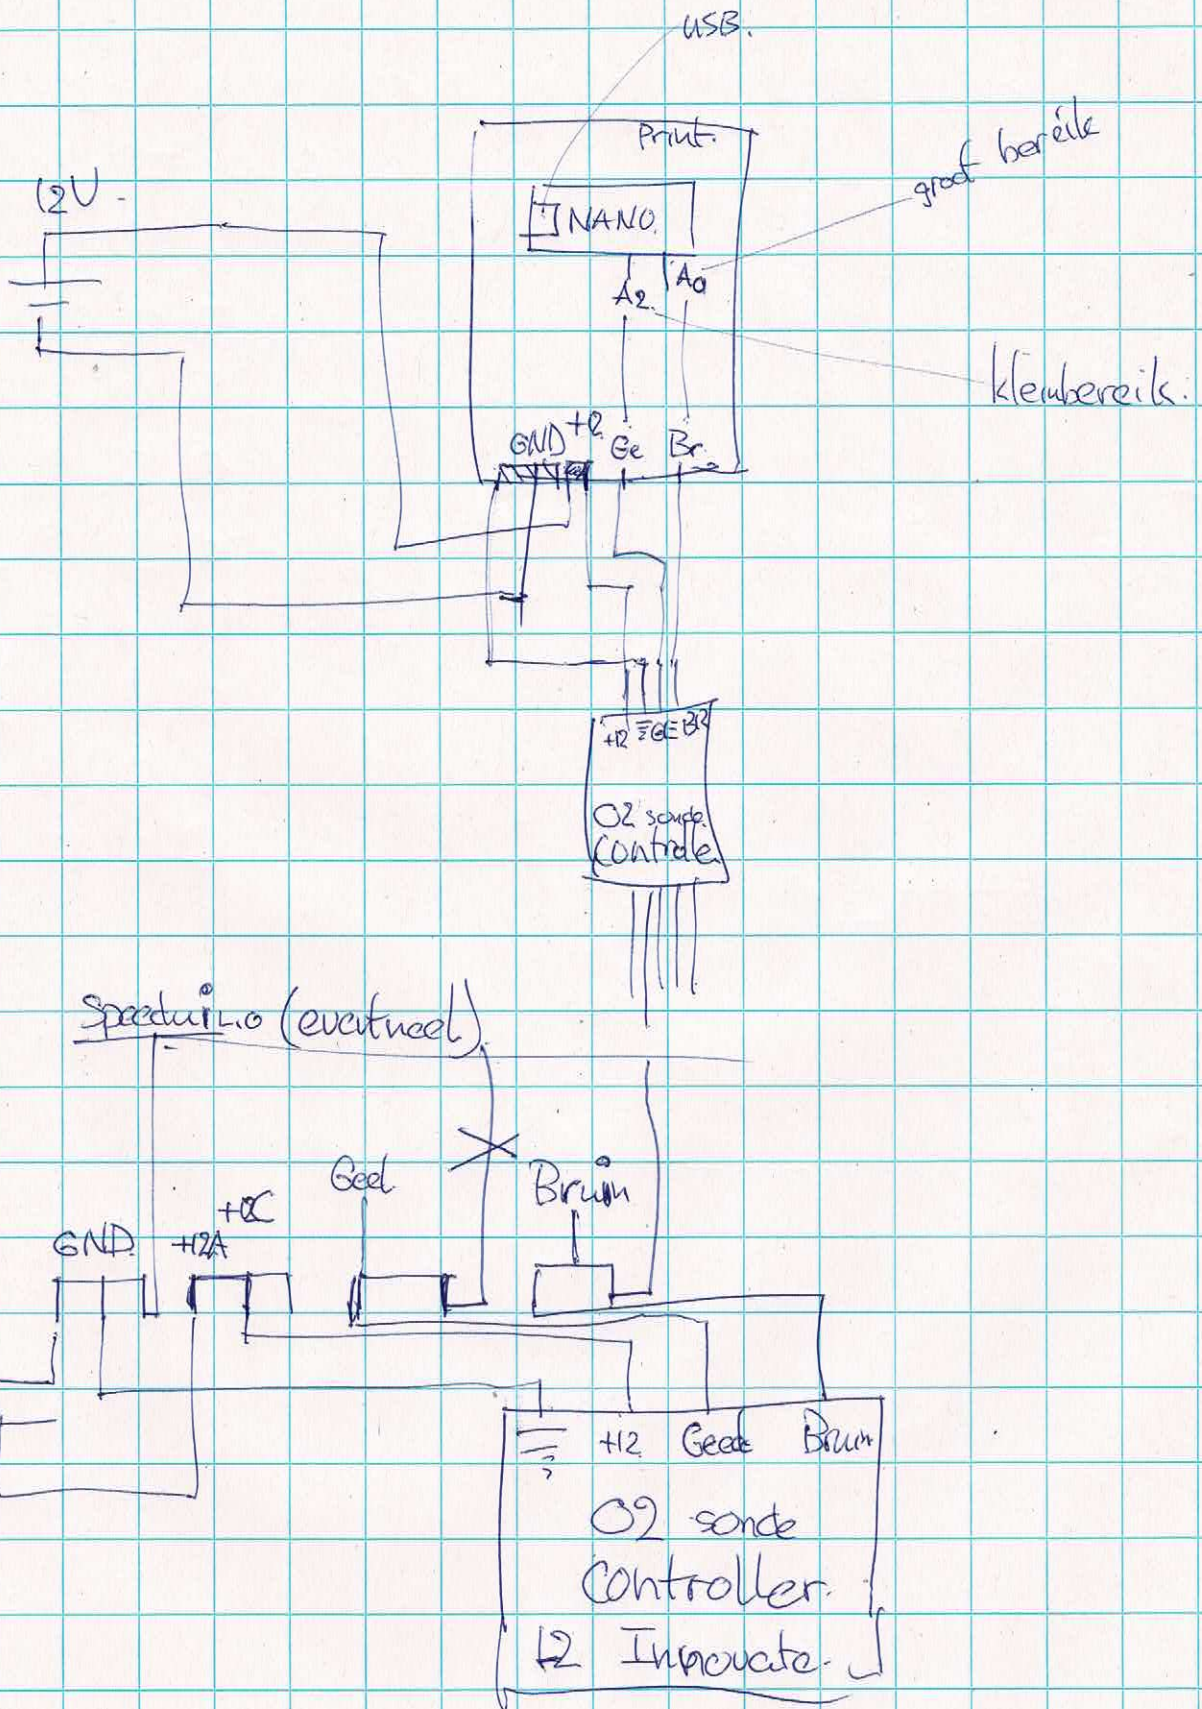 USB.
Print.
groot bereik
12V.
NANO.
A2. A0
kleinbereik.
GND +12 Ge Br.
+12 GE BR
O2 sonde
Controle
Speeduino (eventueel)
Geel
Bruin
GND. +12A
Geel
+12 Bruin
O2 sonde
Controller.
Innovate.